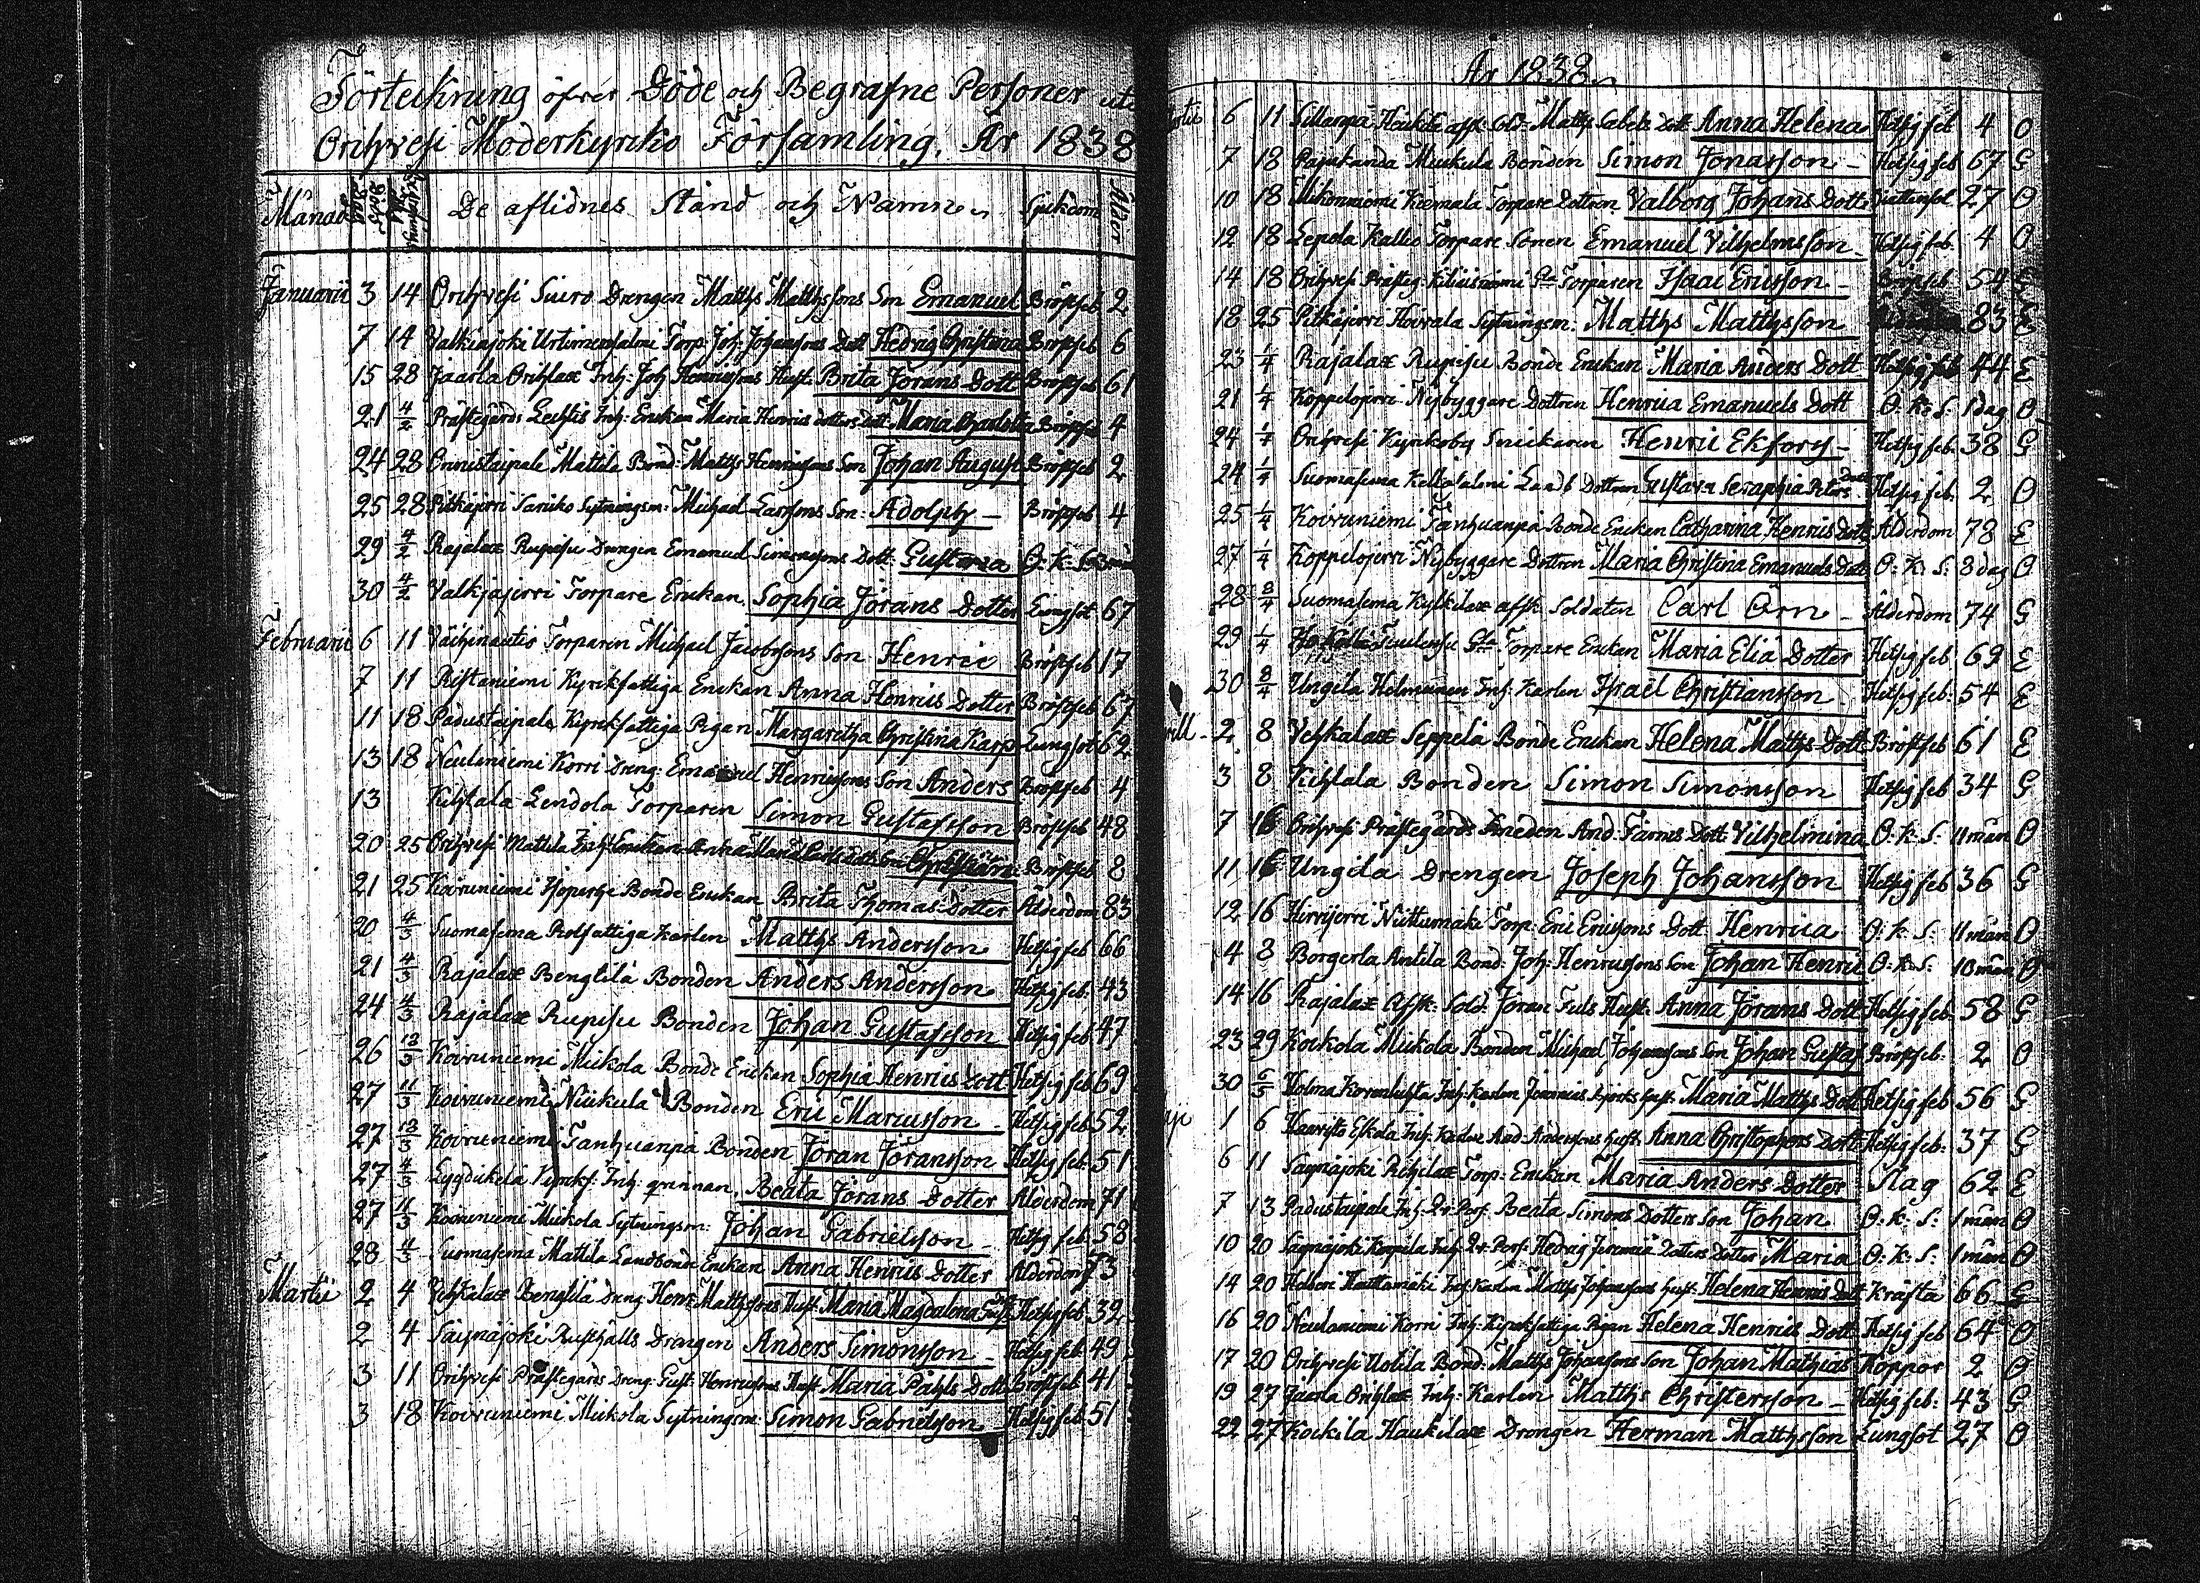 Förteckning öfver Döde och Begrafne Personer uti
Orihvesi Moderkyrko Församling. År 1838
Månad Döds Dag Begrafnings Dag De aflidnes Stånd och Namn Sjukdom Ålder
Januarii 3 14 Orihvesi Suero Drengen Matths Matthssons Son Emanuel Bröstfeb 2
7 14 Valkiajoki Urtimensalmi Torp. Joh. Johanssons Dott Hedvig Christina Bröstfeb 6
15 28 Jaarla Orihlax Inh: Joh Henricssons Hust: Brita Jörans Dott Bröstfeb 61
21 4/2 Prästegårds Inh: Enckan Maria Henrics dotters dott Maria Charlotta Bröstfeb 4
24 28 Onnistaipale Mattila Bond: Matths Henricssons Son Johan August Bröstfeb 2
25 28 Pitkäjerri Sytningsm: Michael Larssons Son: Adolph – Bröstfeb 4
29 4/2 Rajalax Rupisu Drengen Emanuel Simonssons Dott: Gustava O: K: S:
30 4/2 Valkjajerri Torpare Enckan Sophia Jörans Dotter Lungsot 67
Februarii 6 11 Väihinautio Torparen Michael Jacobssons Son Henric Bröstfeb 17
7 11 Ristaniemi Kyrckfattiga Enckan Anna Henrics Dotter Bröstfeb 67
11 18 Padustaipale Kyrckfattiga Pigan Margaretha Christina Karp Lungsot 62
13 18 Neulaniemi Korri Dreng: Emanuel Henricssons Son Anders Bröstfeb 4
13 Kihlala Lendola Torparen Simon Gustafsson Bröstfeb 48
20 25 Orihvesi Mattila Inh: Enckan Anna Maria Son Christian Bröstfeb 8
21 25 Koivuniemi Bonde Enckan Brita Thomas Dotter Ålderdom 83
20 4/3 Suomasema Rotfattiga Karlen Matths Andersson Hetsig feb 66
21 4/3 Rajalax Bengtilä Bonden Anders Andersson Hetsig feb: 43
24 4/3 Rajalax Rupisu Bonden Johan Gustafsson Hetsig feb 47
26 13/3 Koivuniemi Mickola Bonde Enckan Sophia Henrics Dott Hetsig feb 69
27 11/3 Koivuniemi Nickula Bonden Eric Maricsson – Hetsig feb 52
27 13/3 Koivuniemi Tanhuanpä Bonden Jöran Jöransson Hetsig feb: 51
27 4/3 Kyrckf: Inh: qvinnan Beata Jörans Dotter Ålderdom 71
27 11/3 Koivuniemi Mickola Sytningsm: Johan Gabrielsson – Hetsig feb 58
28 11/3 Suomasema Mattila Landbonde Enckan Anna Henrics Dotter Ålderdom 73
Martii 2 4 Vehkalax Bengtilä Dreng Henr Matthssons Hust: Maria Magdalena Hetsigfeb: 39
2 4 Säynäjoki Rusthålls Drengen Anders Simonsson – Hetsig feb: 49
3 11 Orihvesi Prästegårds Dreng: Gust: Henricssons Hust: Maria Påhls Dott Bröstfeb 41
3 18 Koivuniemi Mickola Sytningsm: Simon Gabrielsson Hetsigfeb: 51
År 1838
6 11 Sillanpä Heickilä affsk: Sold: Matths dott Anna Helena Hetsig feb 4 O
7 18 Pajukanda Mickula Bonden Simon Jonasson – Hetsig feb 67 G
10 18 Mikonniemi Kiemala Torpare Dottren Valborg Johans Dott 27 O
12 18 Lepola Kallio Torpare Sonen Emanuel Vilhelmsson Hetsig feb. 4 O
14 18 Orihvesi Präfteg: Torparen Isaac Ericsson – Bröstfeb 54 G
18 25 Pitkäjerri Hoivala Sytningsm: Matths Matthsson 83 E
23 1/4 Rajalax Rupisu Bonde Enckan Maria Anders Dott Hetsig feb 44 E
21 1/4 Koppelojerri Nybyggare Dottren Henrica Emanuels Dott O: K: S: 1 dag O
24 1/4 Orihvesi Kyrkoby Snickaren Henric Ekfors – Hetsig feb. 38 G
24 1/4 Suomasema Kellosalmi Landb Dottren Gustava Seraphia Peters Dott Hetsig feb. 2 O
25 1/4 Koivuniemi Tanhuanpä Bonde Enckan Catharina Henrics Dott Ålderdom 78 E
27 1/4 Koppelojerri Nybyggare Dottren Maria Christina Emanuels Dott O: K: S: 8 dag O
28 8/4 Suomasema Kylkilax affsk Soldaten Carl Örn – Ålderdom 74 G
29 1/4 Torpare Enckan Maria Eliä Dotter Hetsig feb. 69 E
30 8/4 Ungila Helminen Inh: Karlen Israel Christiansson Hetsig feb: 54 E
2 8 Vehkalax Seppelä Bonde Enckan Helena Matths Dott Bröstfeb 61 E
3 8 Kihlala Bonden Simon Simonsson Hetsig feb 34 G
7 16 Orihvesi Prästegårds Smeden And: Färms Dott: Vilhelmina O: K: S: 11 mån O
11 16 Ungila Drengen Joseph Johansson Hetsig feb 36 G
12 16 Hirrijerri Niittumäki Torp: Eric Ericssons Dott Henrica O: K: S: 11 mån O
4 8 Borgerla Antila Bond: Joh: Henricssons Son Johan Henric O: K: S: 10 mån O
14 16 Rajalax Affsk: Sold: Jöran Hust: Anna Jörans Dott Hetsig feb 58 G
23 29 Kockola Mickola Bonden Michael Johanssons Son Johan Gustaf Bröstfeb: 2 O
30 6/5 Holma Inh: Karlen Hust: Maria Matths Dott Hetsig feb 56 G
1 6 Haavisto Eskola Inh: Karlen And: Anderssons Hust: Anna Christophers Dott Hetsig feb: 37 G
6 11 Säynäjoki Rihilax Torp: Enckan Maria Anders Dotter Slag 62 E
7 13 Padustaipale Inh: Beata Simons Dotters Son Johan O: K: S: 1 mån O
10 20 Säynäjoki Inh: Hedvig Jeremiä Dotters Dotter Maria O: K: S: 1 mån O
14 20 Holveri Inh: Karlen Matths Johanssons Hust: Helena Henrics Dott Kräfta 66 G
16 20 Neulaniemi Korri Inh: Kyrckfattiga Pigan Helena Henrics Dott Hetsig feb 64 O
17 20 Orihvesi Uotila Bond: Matths Johanssons Son Johan Mathias Koppor 2 O
19 27 Jaarla Orihlax Inh: Karlen Matths Christersson – Hetsig feb: 43 G
22 27 Kockila Haukilax Drengen Herman Matthsson Lungsot 27 O